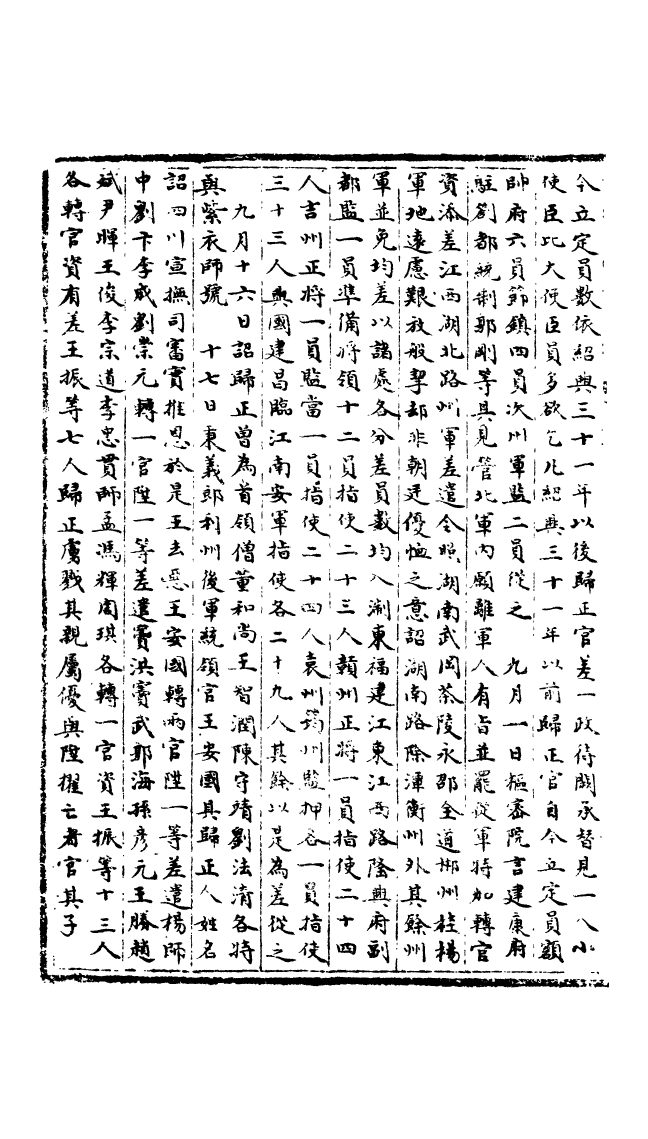 今立定員數依紹興三十一年以後歸正官差一政待闕承替見一八小
使臣比大使臣員多欲乞凡紹興三十一年以前歸正官自今立定員額
帥府六員節鎮四員次州軍監二員從之　九月一日樞密院言建康府
駐劄都統制郭剛等具見管北軍內願離軍人有旨並罷從軍特加轉官
資添差江西湖北路州軍差遣令照湖南武岡茶陵永邵全道郴州桂楊
軍地遠慮艱於般挈却非朝廷優恤之意詔湖南路除潭衡州外其餘州
軍並免均差以諸處各分差員數均入淛東福建江東江西路隆興府副
都監一員準備將領十二員指使二十三人贛州正將一員指使二十四
人吉州正將一員監當一員指使二十四人袁州筠州監押各一員指使
三十三人興國建昌臨江南安軍指使各二十九人其餘以是為差從之
九月十六日詔歸正曾為首領僧董和尚王智潤陳守靖劉法清各特
與紫衣師號　十七日秉義郎利州後軍統領官王安國具歸正人姓名
詔四川宣撫司審實推恩於是王去惡王安國轉兩官陞一等差遣楊師
中劉卞李成劉崇元轉一官陞一等差遣竇洪竇武郭海孫彥元王勝趙
斌尹暉王俊李宗道李忠貫師孟馮輝周琪各轉一官資王振等十三人
各轉官資有差王振等七人歸正虜戮其親屬優與陞擢亡者官其子